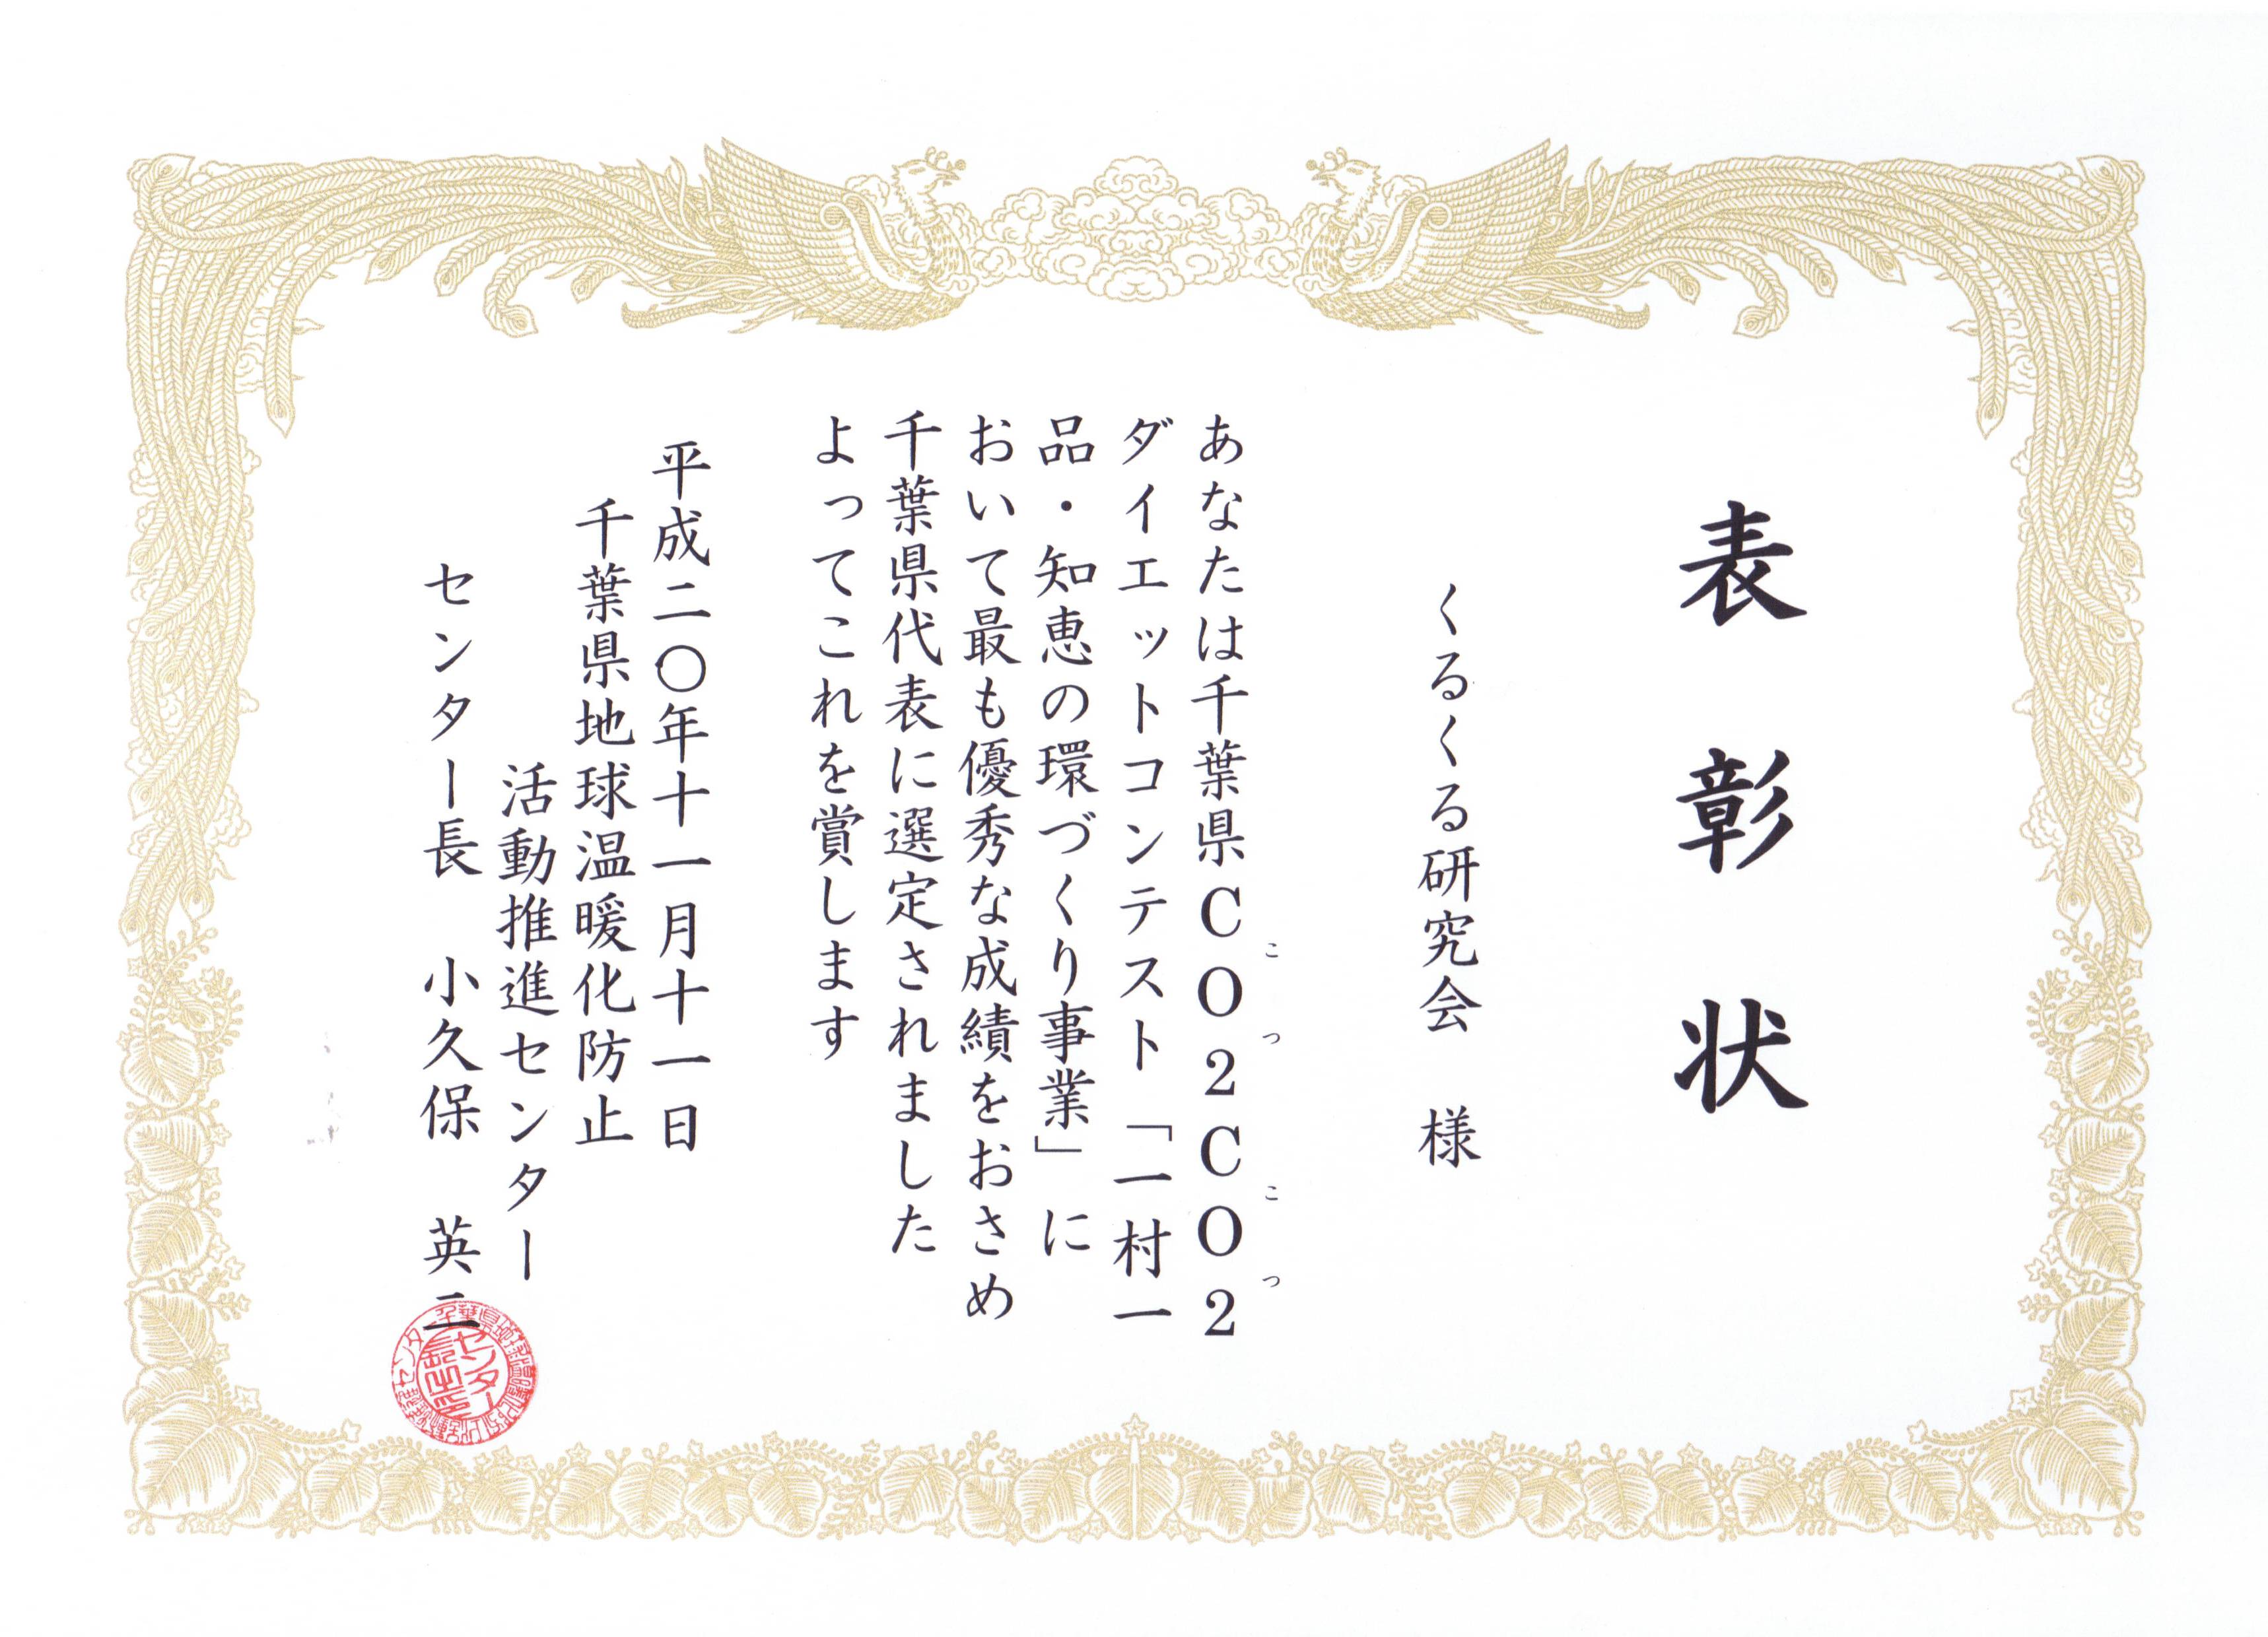 表彰状
くるくる研究会　様
あなたは千葉県CO2CO2
こつこつ
ダイエットコンテスト「一村一
品・知恵の環づくり事業」に
おいて最も優秀な成績をおさめ
千葉県代表に選定されました
よってこれを賞します
平成二〇年十一月十一日
千葉県地球温暖化防止
活動推進センター
センター長　小久保　英二